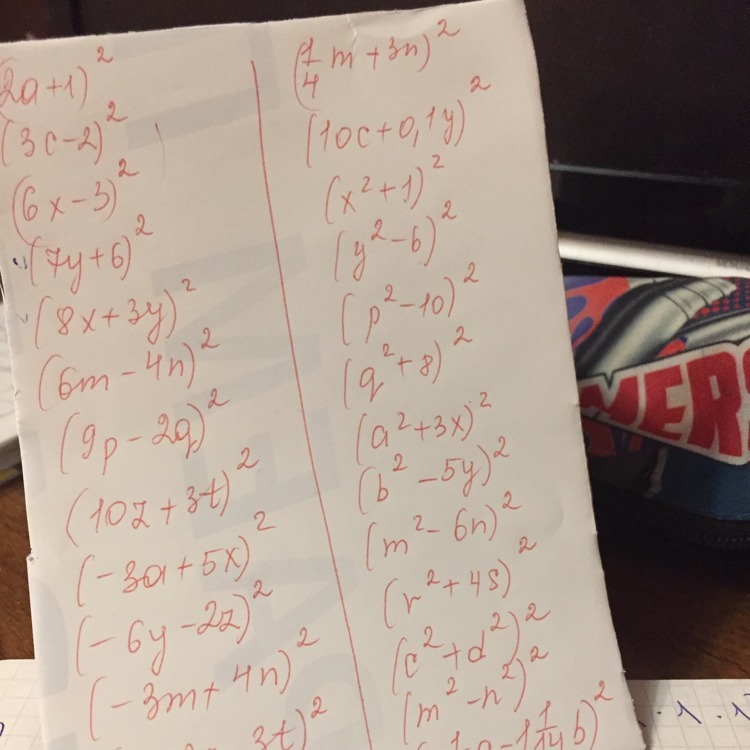 (2a+1)²
(3c-2)²
(6x-3)²
(7y+6)²
(8x+3y)²
(6m-4n)²
(9p-2q)²
(10z+3t)²
(-3a+5x)²
(-6y-2z)²
(-3m+4n)²
3t)²
(1/4 m+3n)²
(10c+0,1y)²
(x²+1)²
(y²-6)²
(p²-10)²
(q²+8)²
(a²+3x)²
(b²-5y)²
(m²-6n)²
(r²+4s)²
(c²+d²)²
(m²-n²)²
a-1 1/14 b)²
MERS